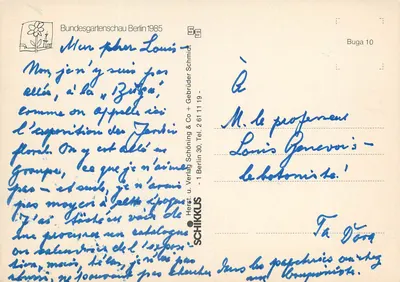 Bundesgartenschau Berlin 1985
Buga 10
Mon cher Louis -
Non je n'y suis pas
allée, à la "Buga",
comme on appelle ici
l'exposition des Jardins
floral. On y est allé en
groupes, ce que je n'aime
pas - et seul, je n'avais
pas moyen à cette époque
J'ai
de
me procurer un catalogue
ou calendrier de l'exposi-
tion, mais, hélas, je n'ai pas
ne pouvant pas chercher dans les
Herst. u. Verlag Schöning & Co + Gebrüder Schmidt
- 1 Berlin 30, Tel. 2 61 11 19 -
SCHIKKUS
À
M. le professeur
Louis Genevois -
le botaniste!
Ta Dora